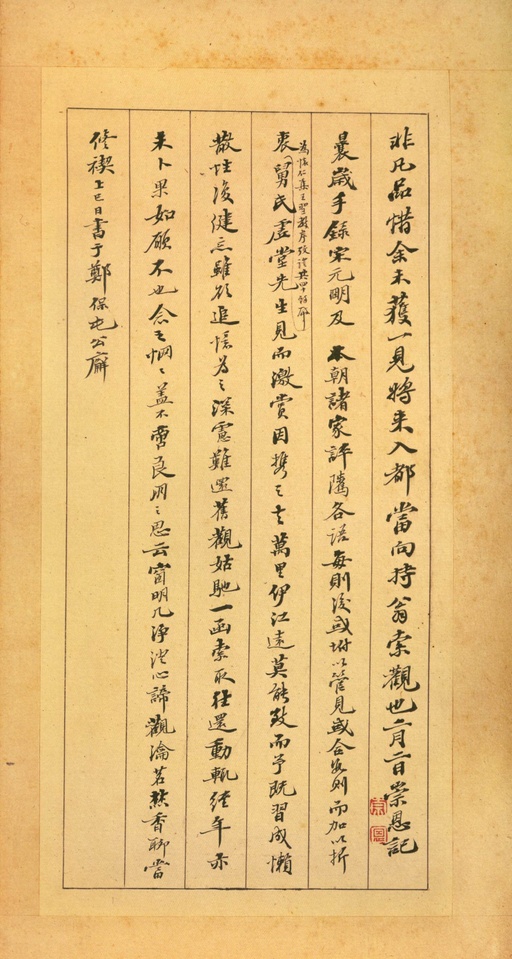 非凡品惜余未獲一見將來入都當向持翁索觀也二月二日崇恩記
曩歲手錄宋元明及本朝諸家評隲各語每則後或坿以管見或合數則而加以折
衷為懷仁集王聖教序攷證共四帋餘舅氏虛堂先生見而激賞因攜之去萬里伊江遠莫能致而予既習成懶
散性復健忘雖欲追憶為之深慮難還舊觀姑馳一函索取往還動輒經年亦
未卜果如願不也念之惘惘蓋不啻良朋之思云窗明几淨澄心諦觀瀹茗爇香聊當
修禊上巳日書于鄭保屯公廨
崇恩